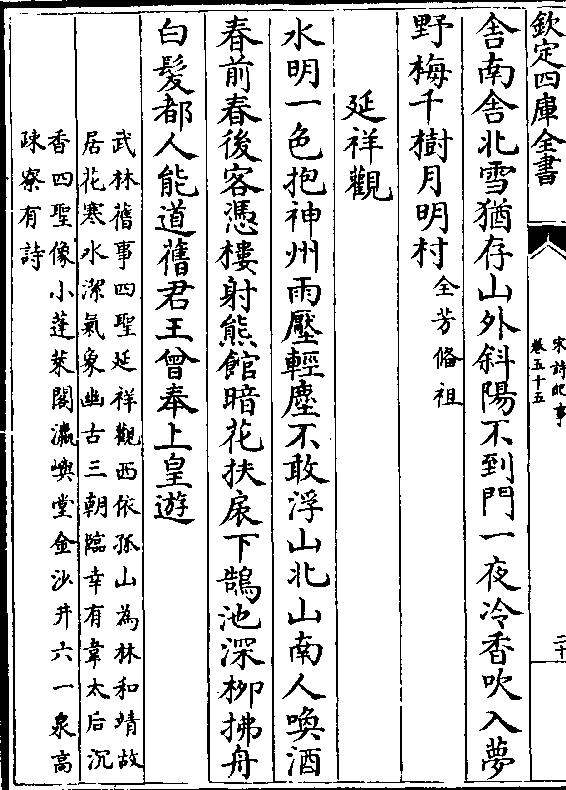 欽定四庫全書
宋詩紀事
卷五十五
二十
舎南舎北雪猶存山外斜陽不到門一夜冷香吹入夢
野梅千樹月明村全芳俻祖
延祥觀
水明一色抱神州雨壓輕塵不敢浮山北山南人喚酒
春前春後客憑樓射熊館暗花扶扆下鵠池深柳拂舟
白髮都人能道舊君王曾奉上皇遊
武林舊事四聖延祥觀西依孤山為林和靖故
居花寒水潔氣象幽古三朝臨幸有韋太后沉
香四聖像小蓬萊閣瀛嶼堂金沙井六一泉高
疎寮有詩